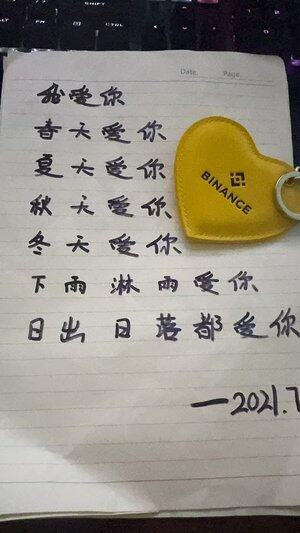 Date.
Page.
我爱你
春天爱你
夏天爱你
秋天爱你
冬天爱你
下雨淋雨爱你
日出日落都爱你
BINANCE
—2021.7
SHIFT